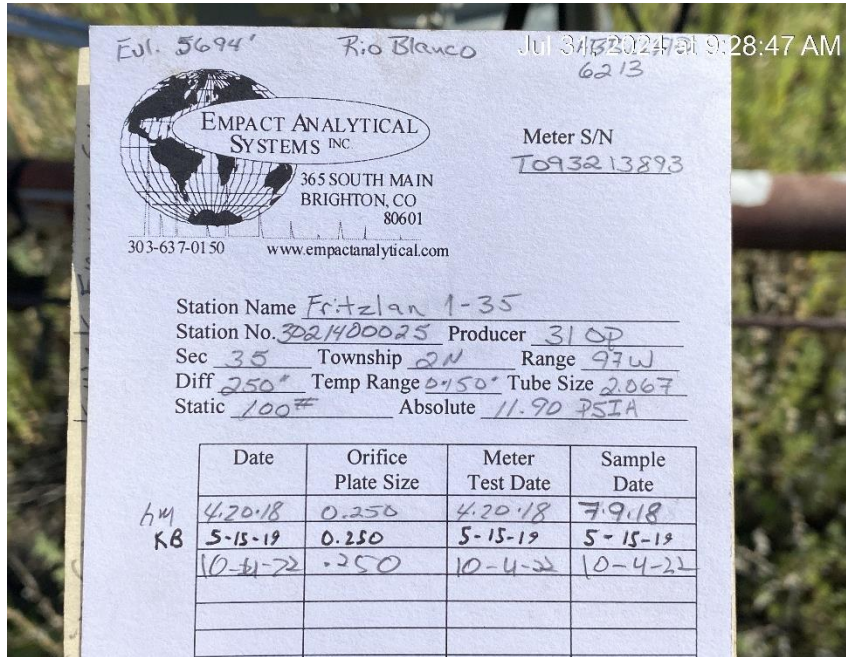 Evl. 5694' Rio Blanco
Jul 31, 2024 at 9:28:47 AM
6213
EMPACT ANALYTICAL
SYSTEMS INC.
365 SOUTH MAIN
BRIGHTON, CO
80601
303-637-0150 www.empactanalytical.com
Meter S/N
T093213893
Station Name Fritzlan 1-35
Station No. 3021400025 Producer 31 OP
Sec 35 Township 2N Range 97W
Diff 250" Temp Range 0-150° Tube Size 2.067
Static 100# Absolute 11.90 PSIA
Date Orifice Plate Size Meter Test Date Sample Date
hm 4.20.18 0.250 4.20.18 7.9.18
KB 5-15-19 0.250 5-15-19 5-15-19
10-4-22 .250 10-4-22 10-4-22